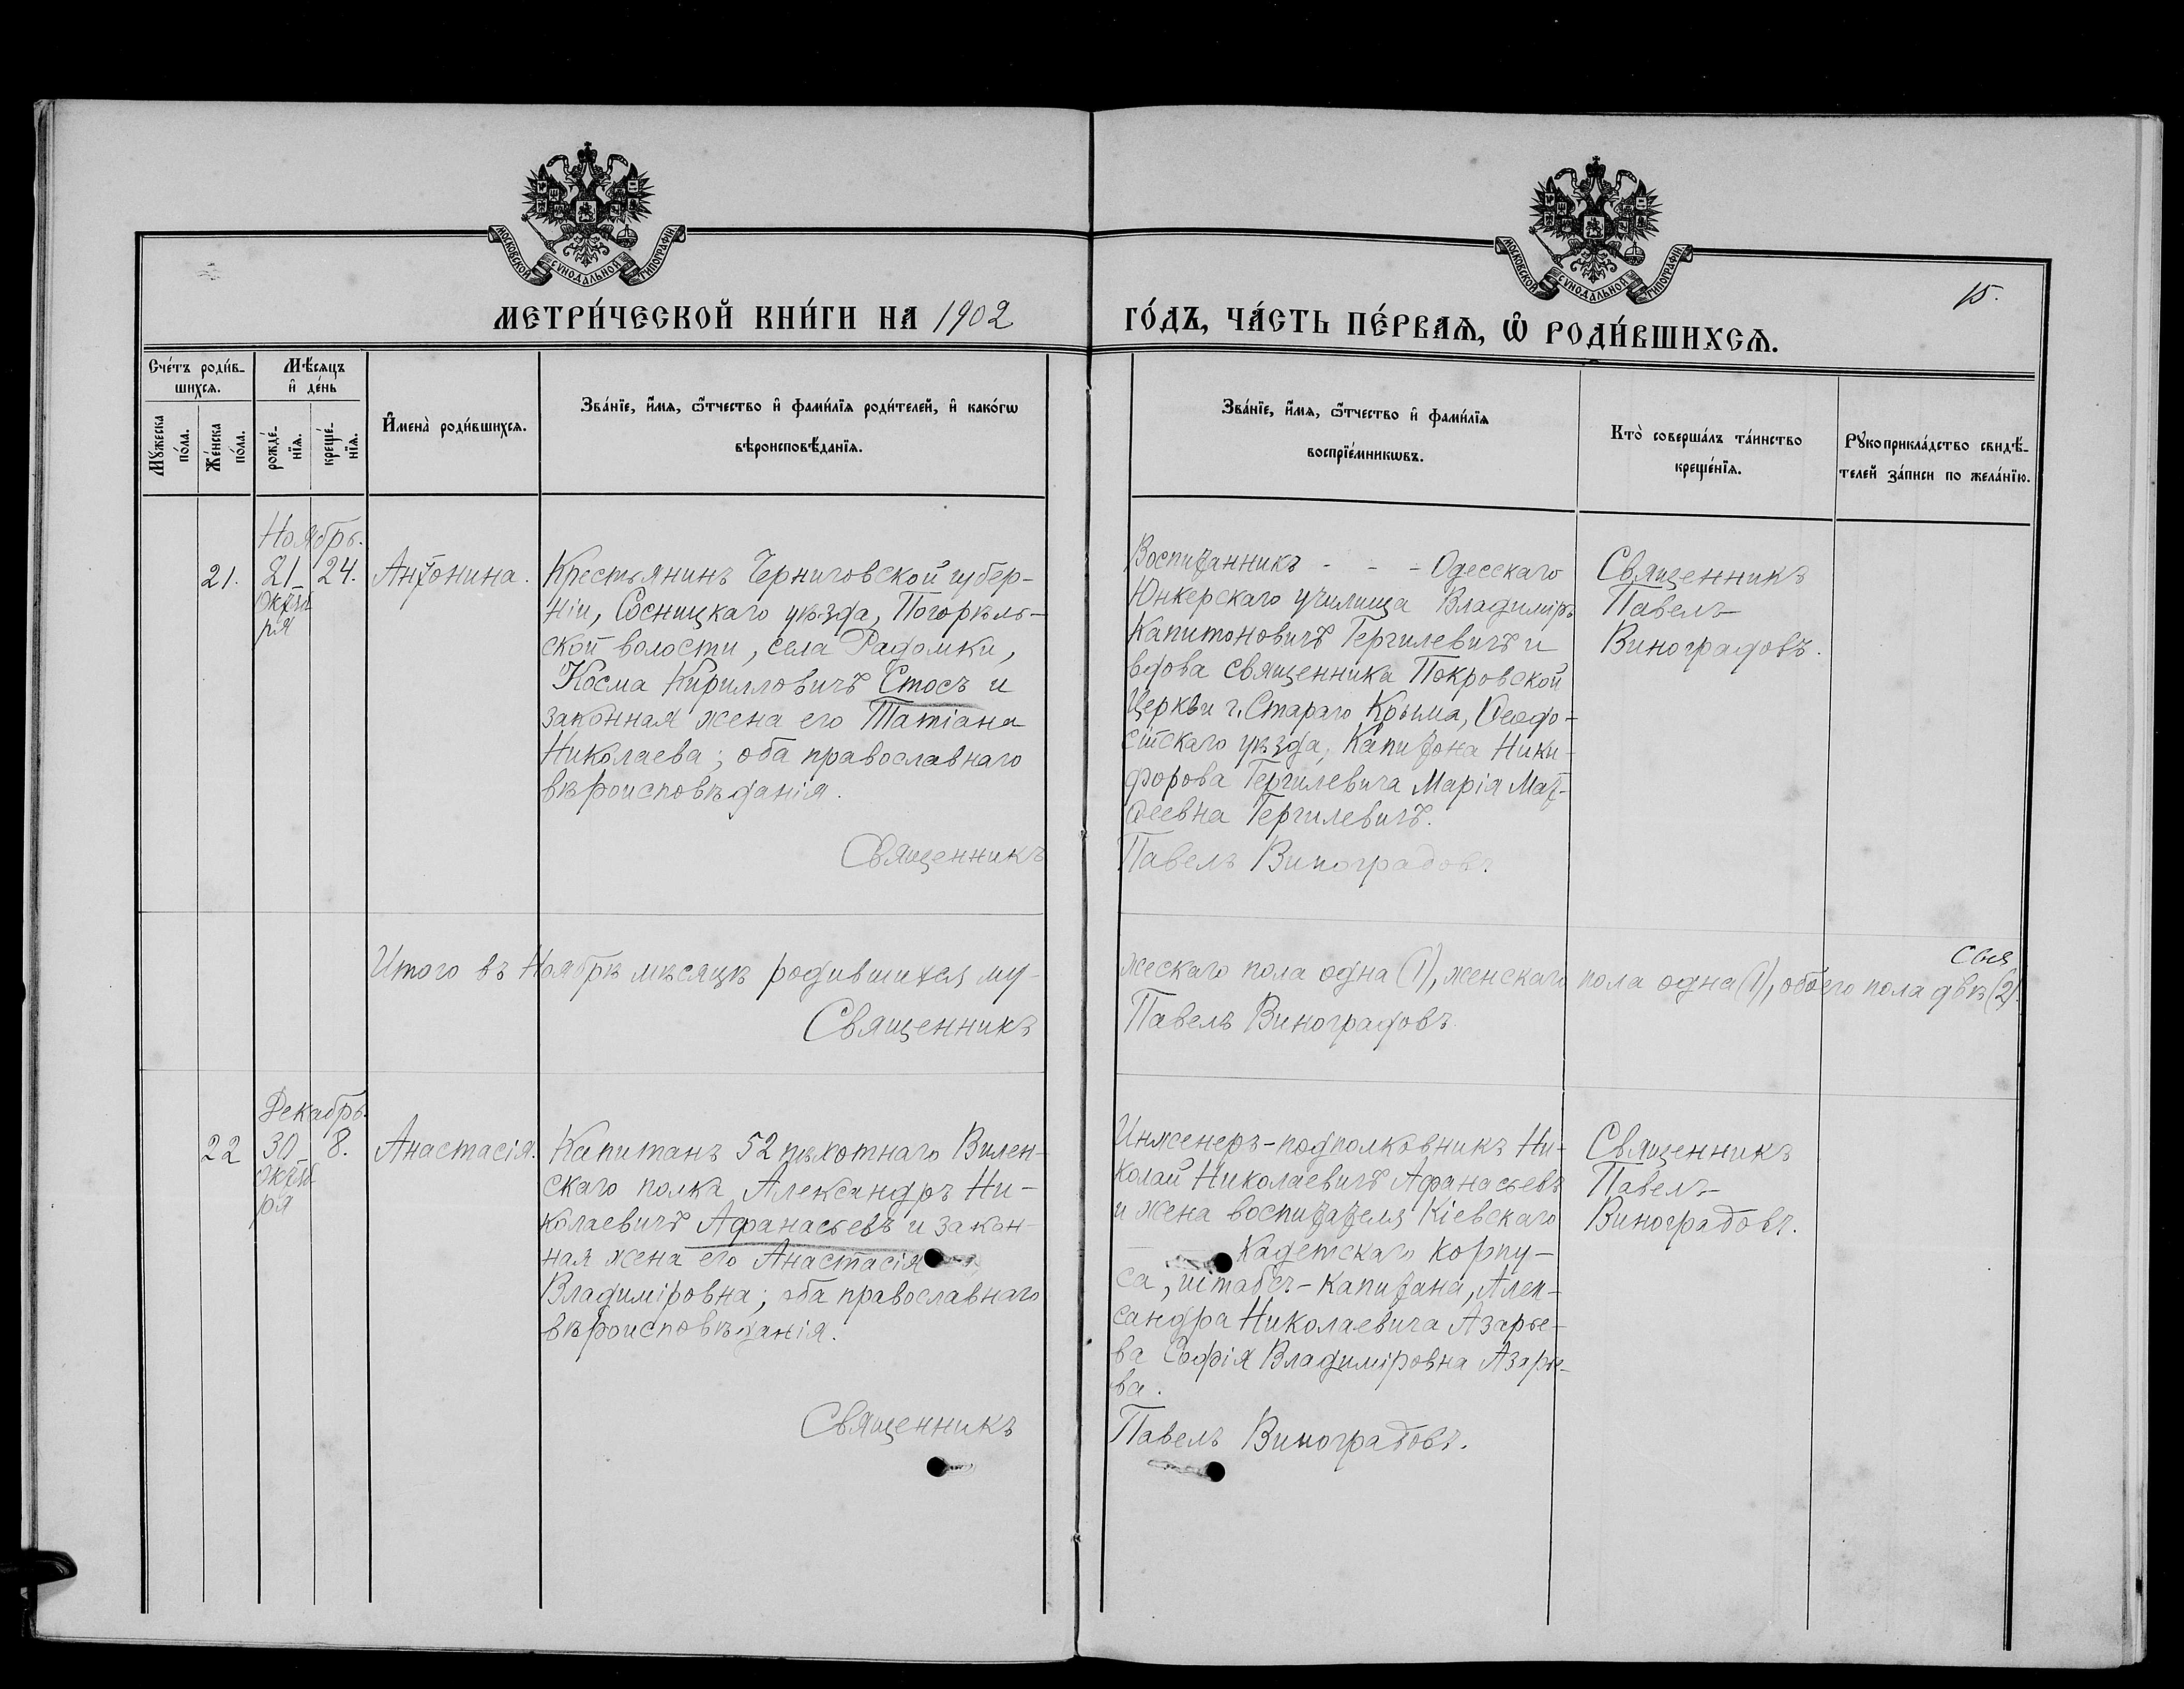 МОСКОВСКОЙ СѴНОДАЛЬНОЙ ТИПОГРАФІИ
МОСКОВСКОЙ СѴНОДАЛЬНОЙ ТИПОГРАФІИ
15.
МЕТРИ́ЧЕСКОЙ КНИ́ГИ НА 1902
ГО́ДЪ, ЧА́СТЬ ПЕ́РВАѦ, Ѽ РОДИ́ВШИХСѦ.
Сче́тъ роди́в-
шихсѧ.
Мѣ́сяцъ
и҆ де́нь
Мꙋ́жеска
по́ла.
Же́нска
по́ла.
рожде́-
нїѧ.
креще́-
нїѧ.
И҆мена̀ роди́вшихсѧ.
Зва́нїе, и҆́мѧ, ѻ҆́тчество и҆ фами́лїѧ роди́телей, и҆ како́гѡ
вѣроисповѣ́данїѧ.
Зва́нїе, и҆́мѧ, ѻ҆́тчество и҆ фами́лїѧ
воспрїе́мникѡвъ.
Кто̀ соверша́лъ та́инство
креще́нїѧ.
Рꙋкоприкла́дство свидѣ́-
телей за́писи по жела́нїю.
Ноябрь.
21. 21 24. Антонина.
октяб
ря
Крестьянинъ Черниговской губер-
ніи, Сосницкаго уѣзда, Погорѣль-
ской волости, села Радомки,
Косма Кирилловичъ Стосъ и
законная жена его Татіана
Николаева; оба православнаго
вѣроисповѣданія.
Священникъ
Воспитанникъ - - - Одесскаго
Юнкерскаго училища Владиміръ
Капитоновичъ Гергилевичъ и
вдова священника Покровской
церкви г. Стараго Крыма, Ѳеодо-
сійскаго уѣзда, Капитона Ники-
форова Гергилевича Марія Мат-
ѳеевна Гергилевичъ.
Павелъ Виноградовъ.
Священникъ
Павелъ
Виноградовъ.
Итого въ Ноябрѣ мѣсяцѣ родившихся му-
жескаго пола одна (1), женскаго пола одна (1), обоего пола двѣ (2).
Священникъ
Павелъ Виноградовъ
Декабрь.
22 30 8. Анастасія.
октяб
ря
Капитанъ 52 пѣхотнаго Вилен-
скаго полка Александръ Ни-
колаевичъ Афанасьевъ и закон-
ная жена его Анастасія
Владиміровна; оба православнаго
вѣроисповѣданія.
Священникъ
Инженеръ-подполковникъ Ни-
колай Николаевичъ Афанасьевъ
и жена воспитателя Кіевскаго
Кадетскаго корпу-
са, штабсъ-капитана, Алек-
сандра Николаевича Азарье-
ва Софія Владиміровна Азарье-
ва.
Павелъ Виноградовъ.
Священникъ
Павелъ
Виноградовъ.